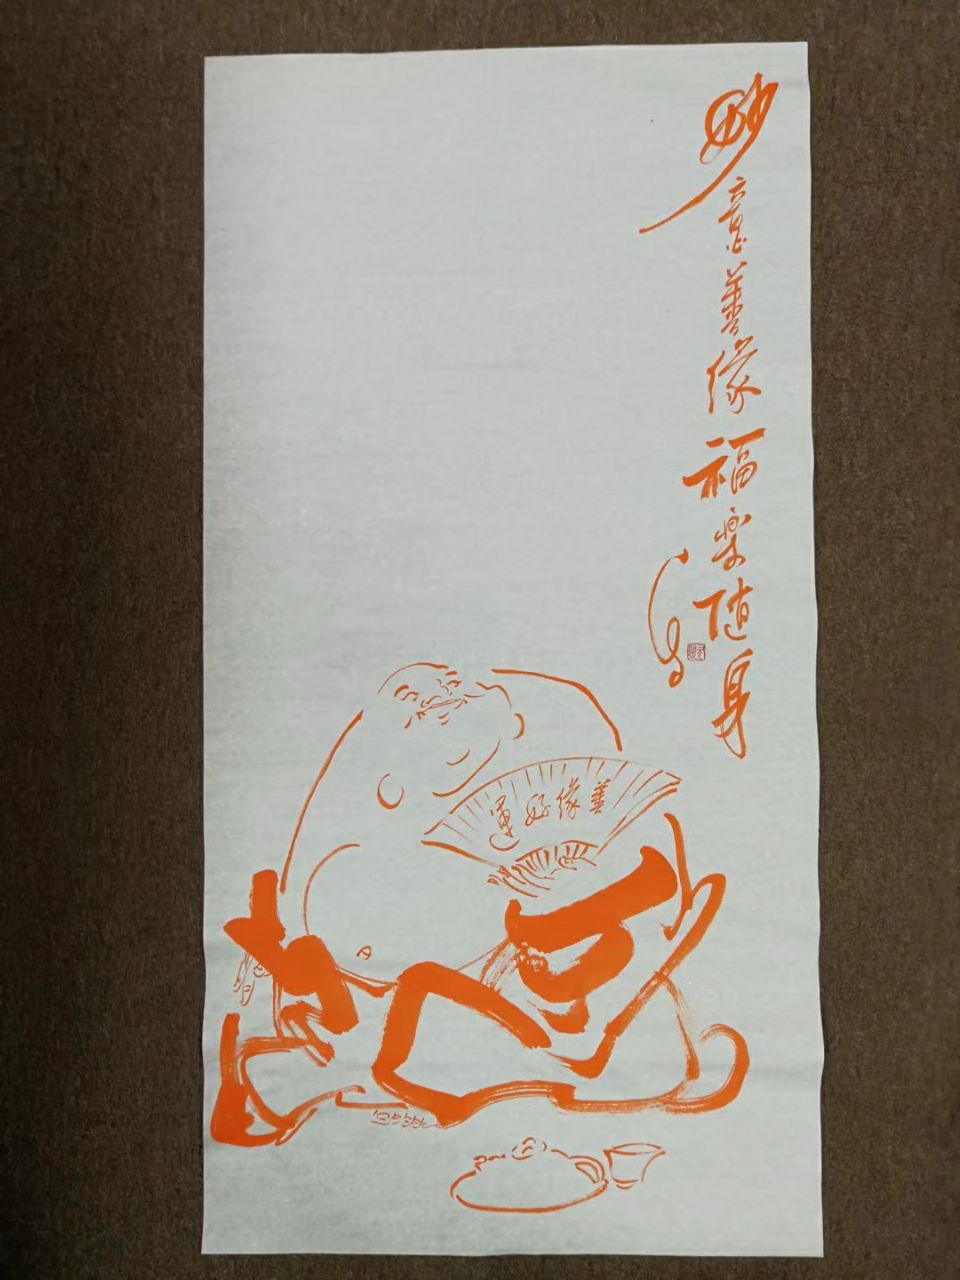 妙意善缘福樂随身
善缘好運